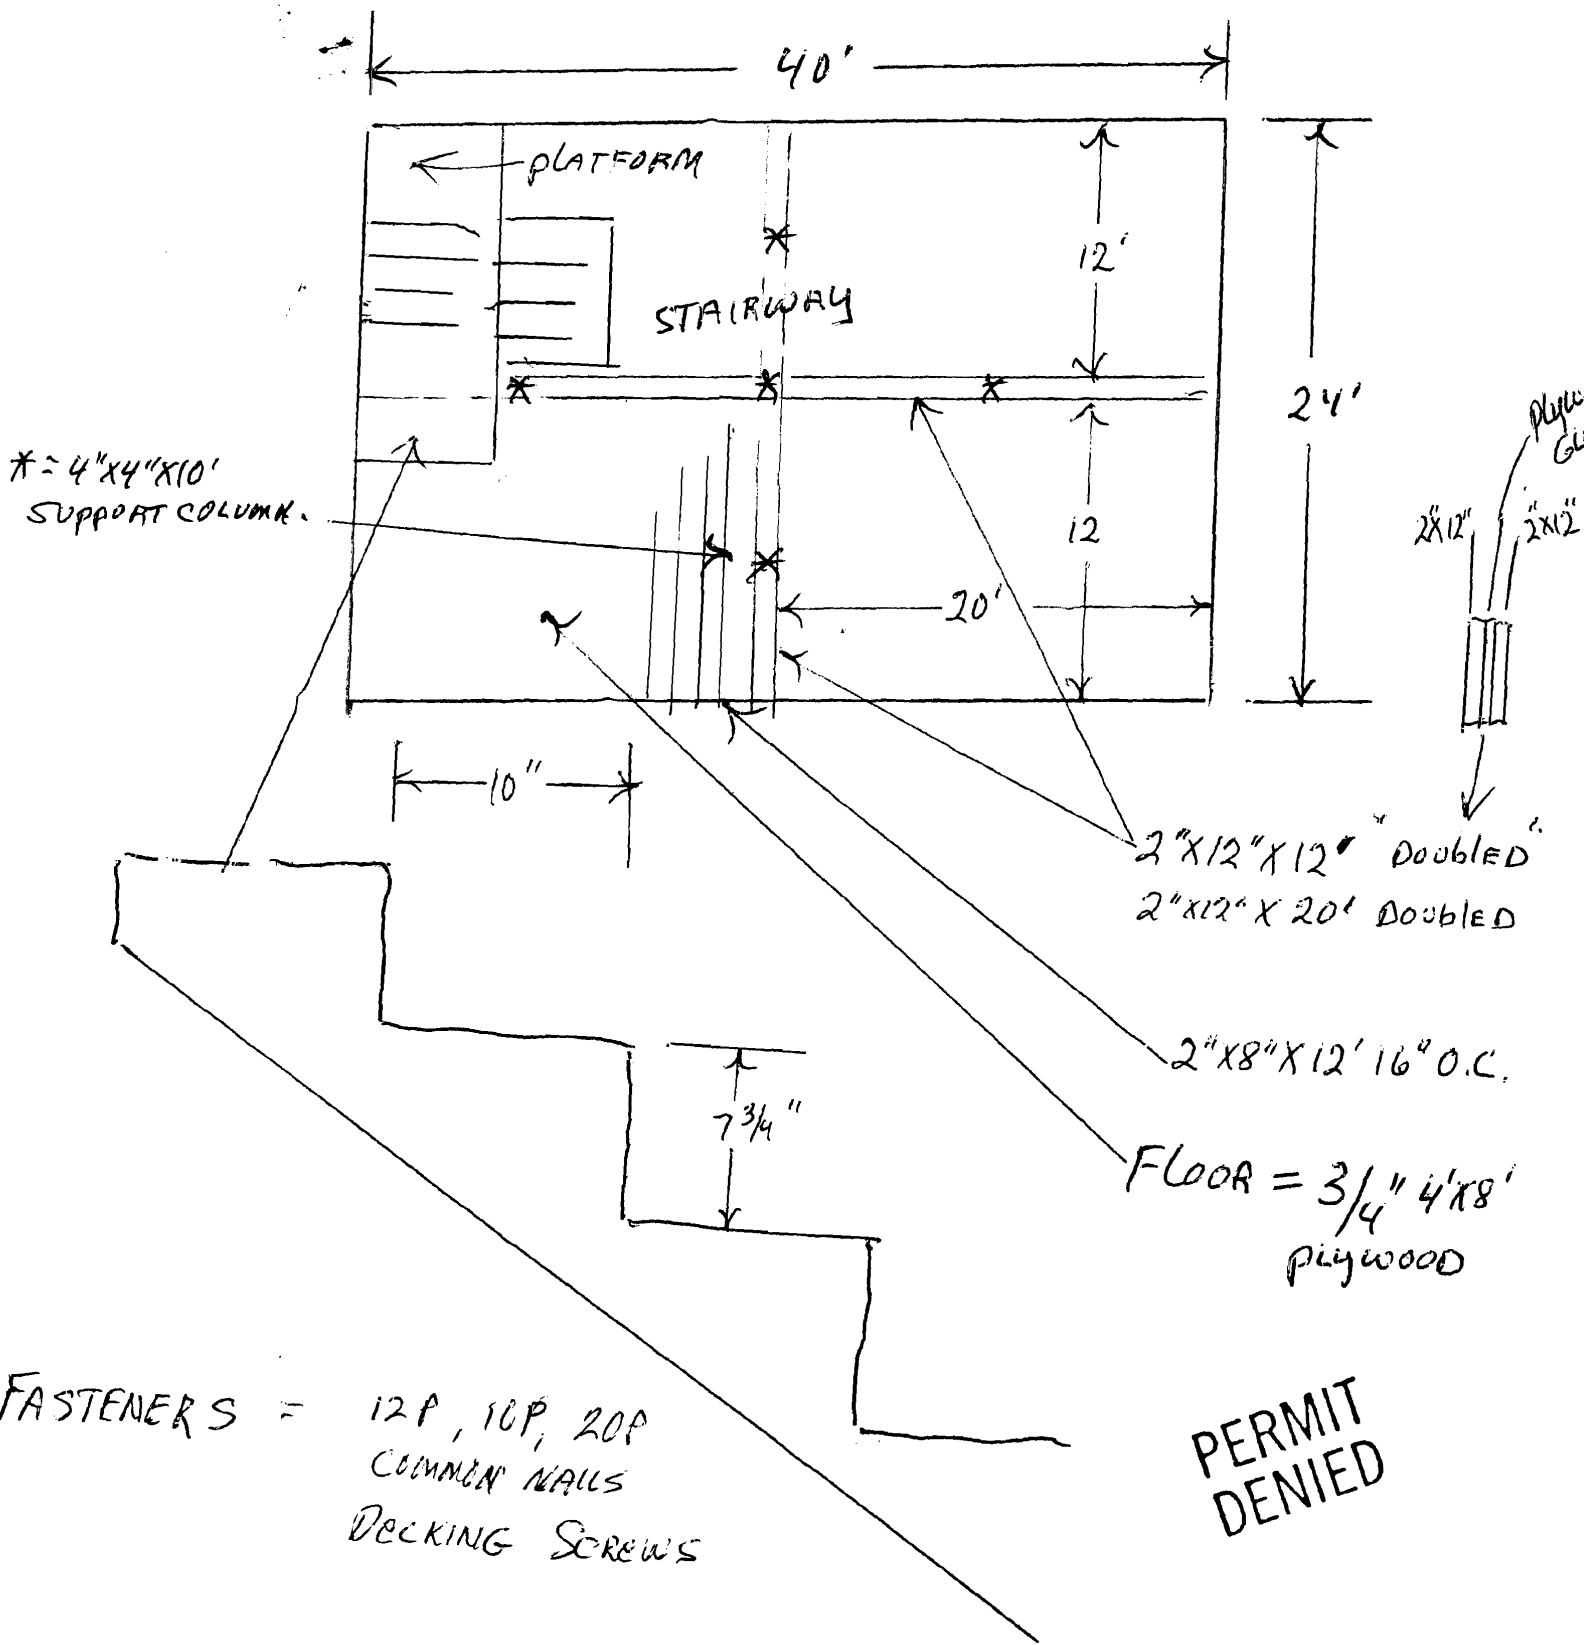 40'
PLATFORM
12'
STAIRWAY
24'
* = 4"X4"X10'
SUPPORT COLUMN.
2"X12"
2"X12"
12
20'
10"
2"X12"X12' "DOUBLED"
2"X12"X20' DOUBLED
2"X8"X12' 16" O.C.
7 3/4"
FLOOR = 3/4" 4'X8'
PLYWOOD
FASTENERS = 12P, 10P, 20P
COMMON NAILS
DECKING SCREWS
PERMIT
DENIED